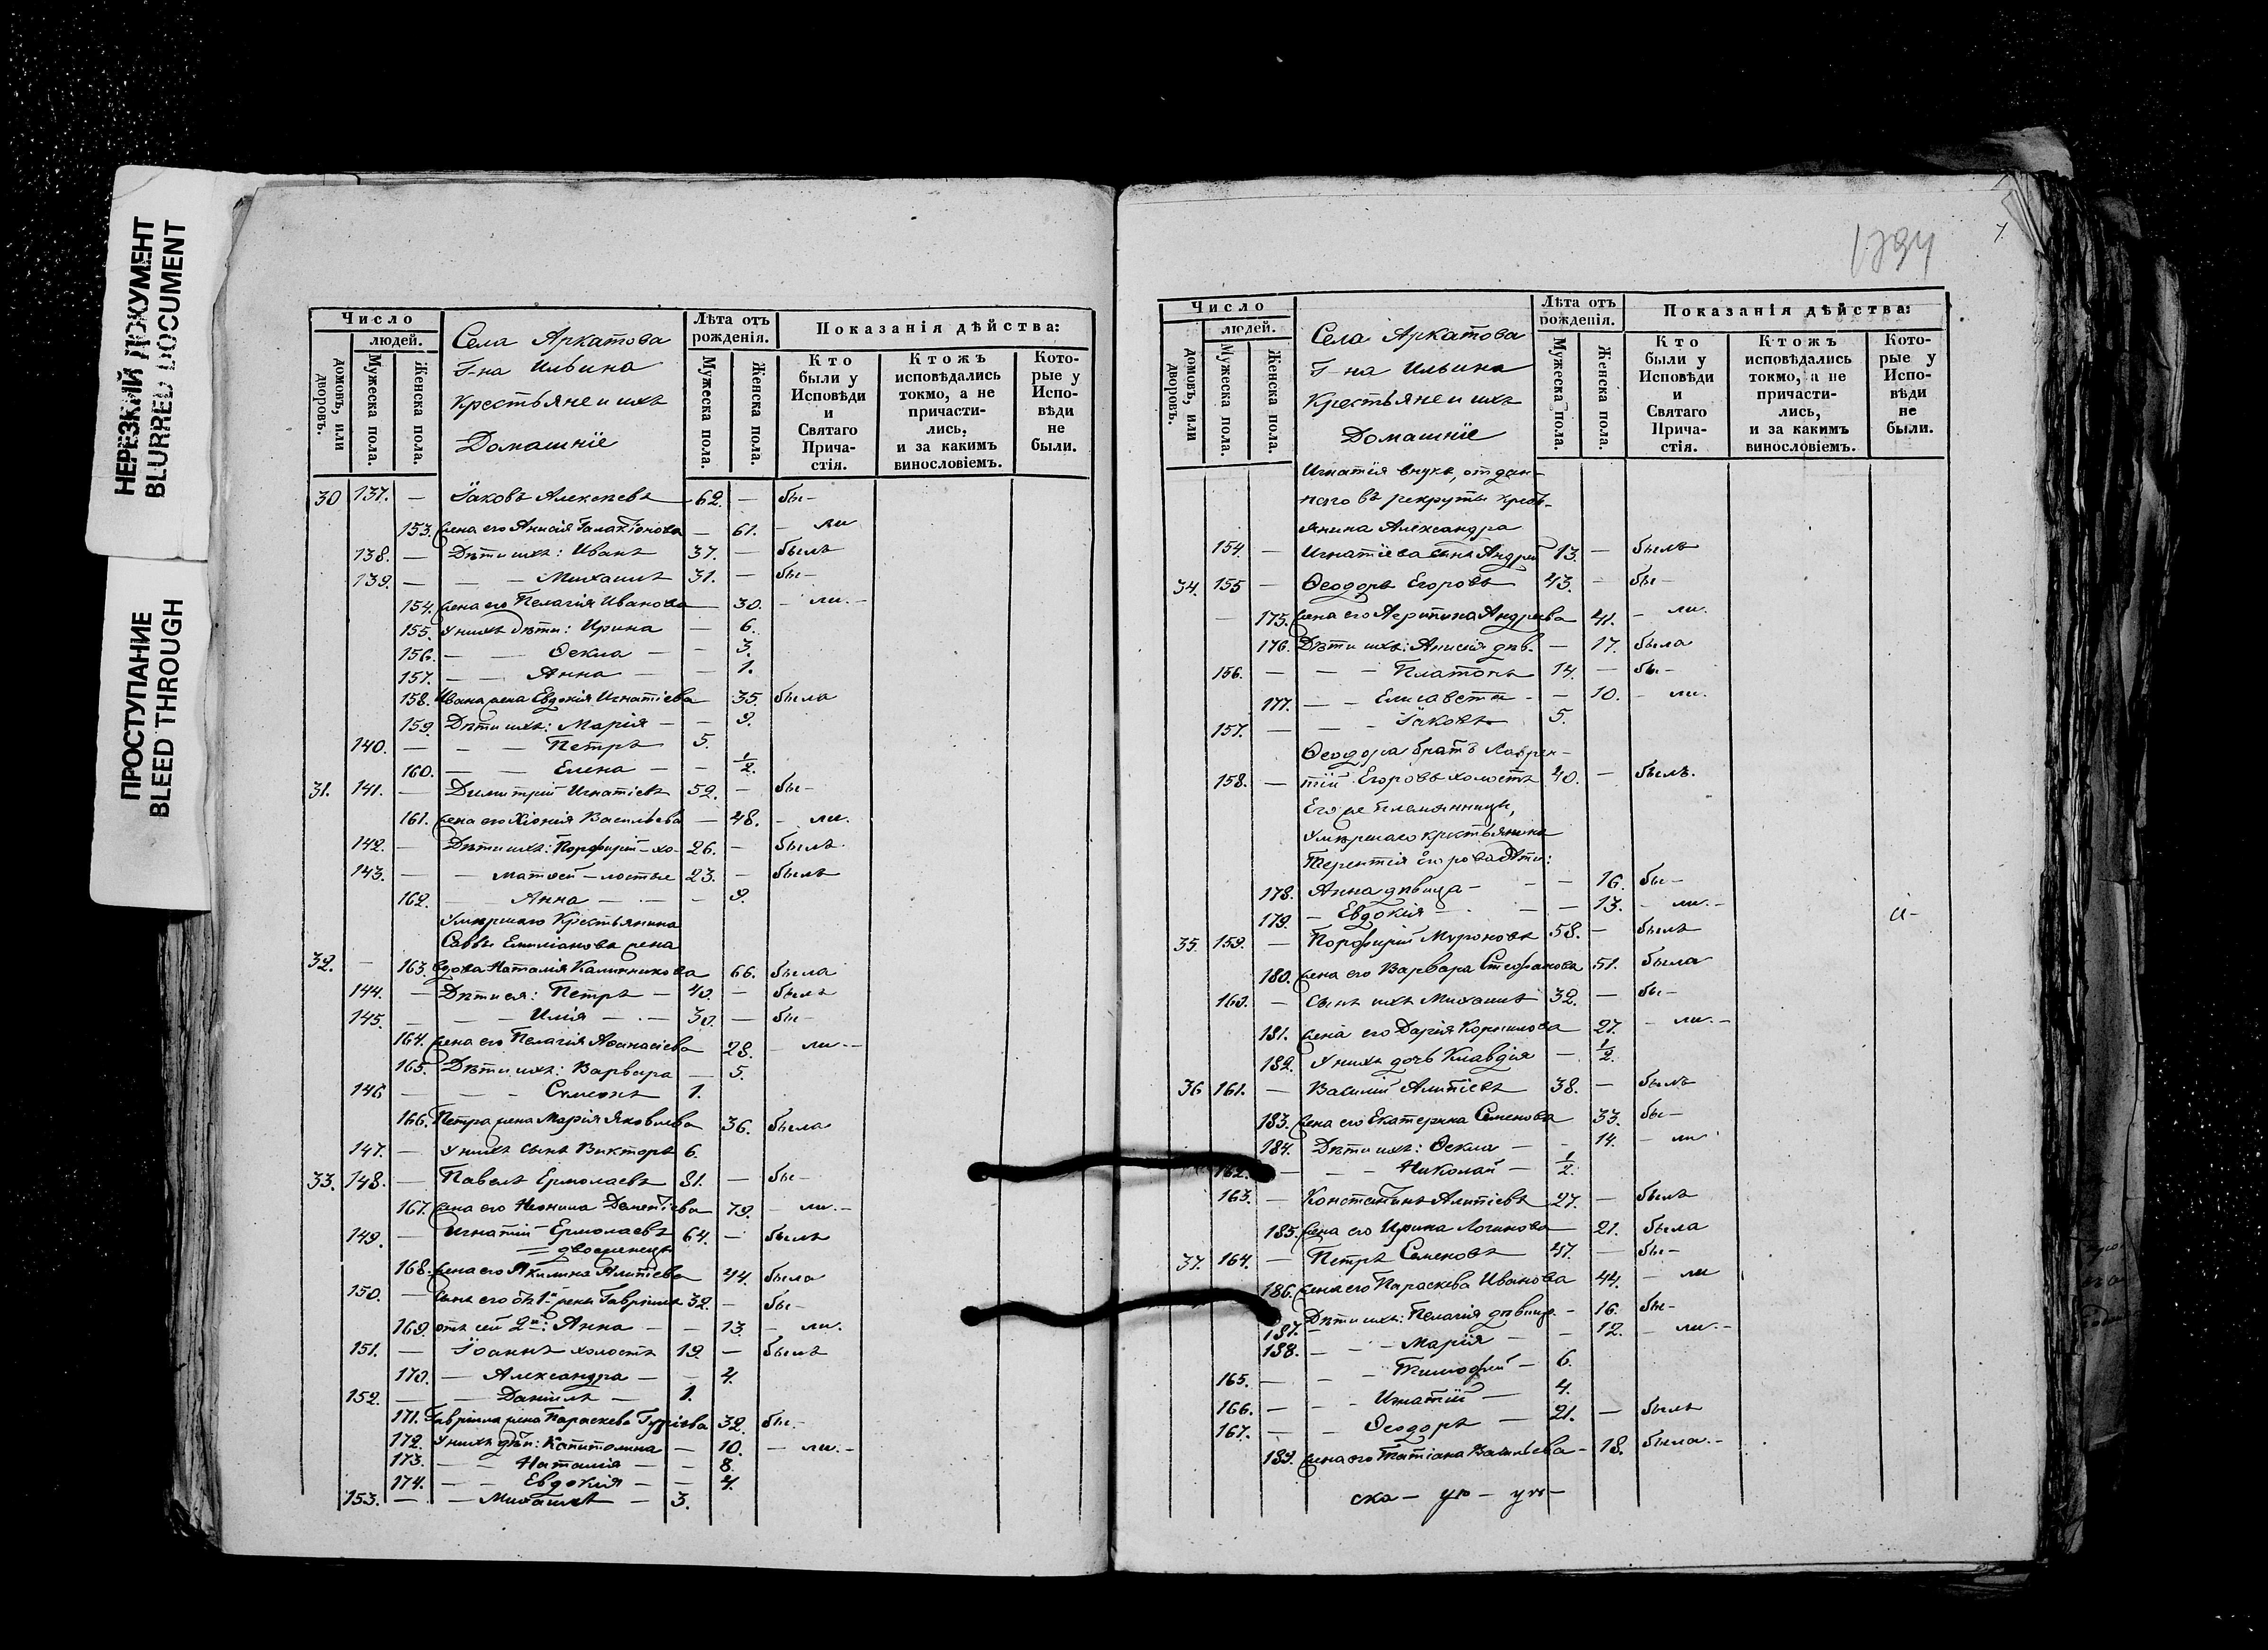 НЕРЕЗКИЙ ДОКУМЕНТ
BLURRED DOCUMENT
ПРОСТУПАНИЕ
BLEED THROUGH
Число
людей.
домовъ, или дворовъ.
Мужеска пола.
Женска пола.
Села Аркатова
Г-на Ильина
Крестьяне и ихъ
Домашнiе
Лѣта отъ рожденiя.
Мужеска пола.
Женска пола.
Показанiя дѣйства:
Кто были у Исповѣди и Святаго Прича-стiя.
Ктожъ исповѣдались токмо, а не причасти-лись, и за какимъ винословiемъ.
Кото-рые у Испо-вѣди не были.
30 137. — Iаковъ Алексѣевъ 62. — бы-
153. жена его Анисiя Галактiонова — 61. - ли
138. — Дѣти ихъ: Иванъ 37. — былъ
139. — — — Михаилъ 31. — бы-
154. жена его Пелагiя Иванова — 30. - ли. -
155. У нихъ дѣти: Ирина — 6.
156. — — Ѳекла — - 3.
157. — — Анна — — 1.
158. Ивана жена Евдокiя Игнатiева 35. была
159. Дѣти ихъ: Марiя — - 9.
140. — — — Петръ 5.
160. — — Елена — - 1/2.
31. 141. — Димитрiй Игнатiевъ 52. — бы-
161. жена его Хiонiя Васильева — 48. - ли.
142. — Дѣти ихъ: Порфирiй - хо- 26. - былъ
143. — — Матѳей - лостые 23. - былъ
162. — — Анна — - 9.
Умершаго Крестьянина
Саввы Емилiанова жена
32. — 163. вдова Наталiя Калинникова 66. была
144. — Дѣти ея: Петръ — 40. — былъ
145. — — — Илiя — 30. — бы-
164. жена его Пелагiя Аѳанасiева 28. - ли. -
165. Дѣти ихъ: Варвара — 5.
146 — — - Симеонъ 1.
166. Петра жена Марiя Яковлева 36. была
147. — У нихъ сынъ Викторъ 6.
33. 148. — Павелъ Ермолаевъ 81. — бы-
167. жена его Неонила Деметiева 79. - ли. -
149. — Игнатiй Ермолаевъ 64. — былъ
= двоеженецъ
168. жена его Акилина Алитiева 44. была
150. — Сынъ его отъ 1й жены Гаврiилъ 32. — бы-
169. отъ сей 2й: Анна — - 13. - ли.
151. — Iоаннъ холостъ 19. — былъ
170. — Александра — - 4.
152. — — Данiилъ — 1.
171. Гаврiила жена Параскева Гурiева 32. бы-
172. У нихъ дѣти: Капитолина — 10. - ли. -
173. — — Наталiя — - 8.
174. — — Евдокiя — - 4.
153. — — Михаилъ — 3.
1794
Число
людей.
домовъ, или дворовъ.
Мужеска пола.
Женска пола.
Села Аркатова
Г-на Ильина
Крестьяне и ихъ
Домашнiе
Лѣта отъ рожденiя.
Мужеска пола.
Женска пола.
Показанiя дѣйства:
Кто были у Исповѣди и Святаго Прича-стiя.
Ктожъ исповѣдались токмо, а не причасти-лись, и за какимъ винословiемъ.
Кото-рые у Испо-вѣди не были.
Игнатiя внукъ, отдан-
наго въ рекруты кресть-
янина Александра
154. — Игнатiева сынъ Андрей 13. — былъ
34. 155 — Ѳеодоръ Егоровъ 43. — бы-
175. жена его Агрипина Андреева 41. - ли.
176. Дѣти ихъ: Анисiя дѣв. — 17. была
156. — — — Платонъ 14. — бы-
177. — — Елисавета - — 10. - ли.
157. — — - Iаковъ 5.
Ѳеодора братъ Лаврен-
158. — тiй Егоровъ холостъ 40. — былъ.
Его же племянницы,
Умершаго крестьянина
Терентiя Егорова дѣти:
178. Анна дѣвица - — 16. бы-
179. - Евдокiя - — 13. - ли. -
35. 159. — Порфирiй Муроновъ 58. — былъ
180. жена его Варвара Стефанова 51. была
160. — Сынъ ихъ Михаилъ 32. — бы-
181. жена его Дарiя Корнилова 27. - ли. -
182. У нихъ дочь Клавдiя — 1/2.
36 161. — Василiй Алитiевъ 38. — былъ
183. жена его Екатерина Семенова 33. бы-
184. Дѣти ихъ: Ѳекла — - 14. - ли
162. — — - Николай — 1/2.
163. — Константинъ Алитiевъ 27. — былъ
185. жена его Ирина Логинова 21. была
37. 164. — Петръ Семеновъ 47. — бы-
186. жена его Параскева Иванова 44. - ли
187. Дѣти ихъ: Пелагiя дѣвица - 16. бы-
188. — — - Марiя — - 12. - ли. -
165. — — - Тимофей — 6.
166. — — - Игнатiй — 4.
167. — — Ѳеодоръ — 21. — былъ
189. жена его Татiана Васильева - 18. была. -
ска -